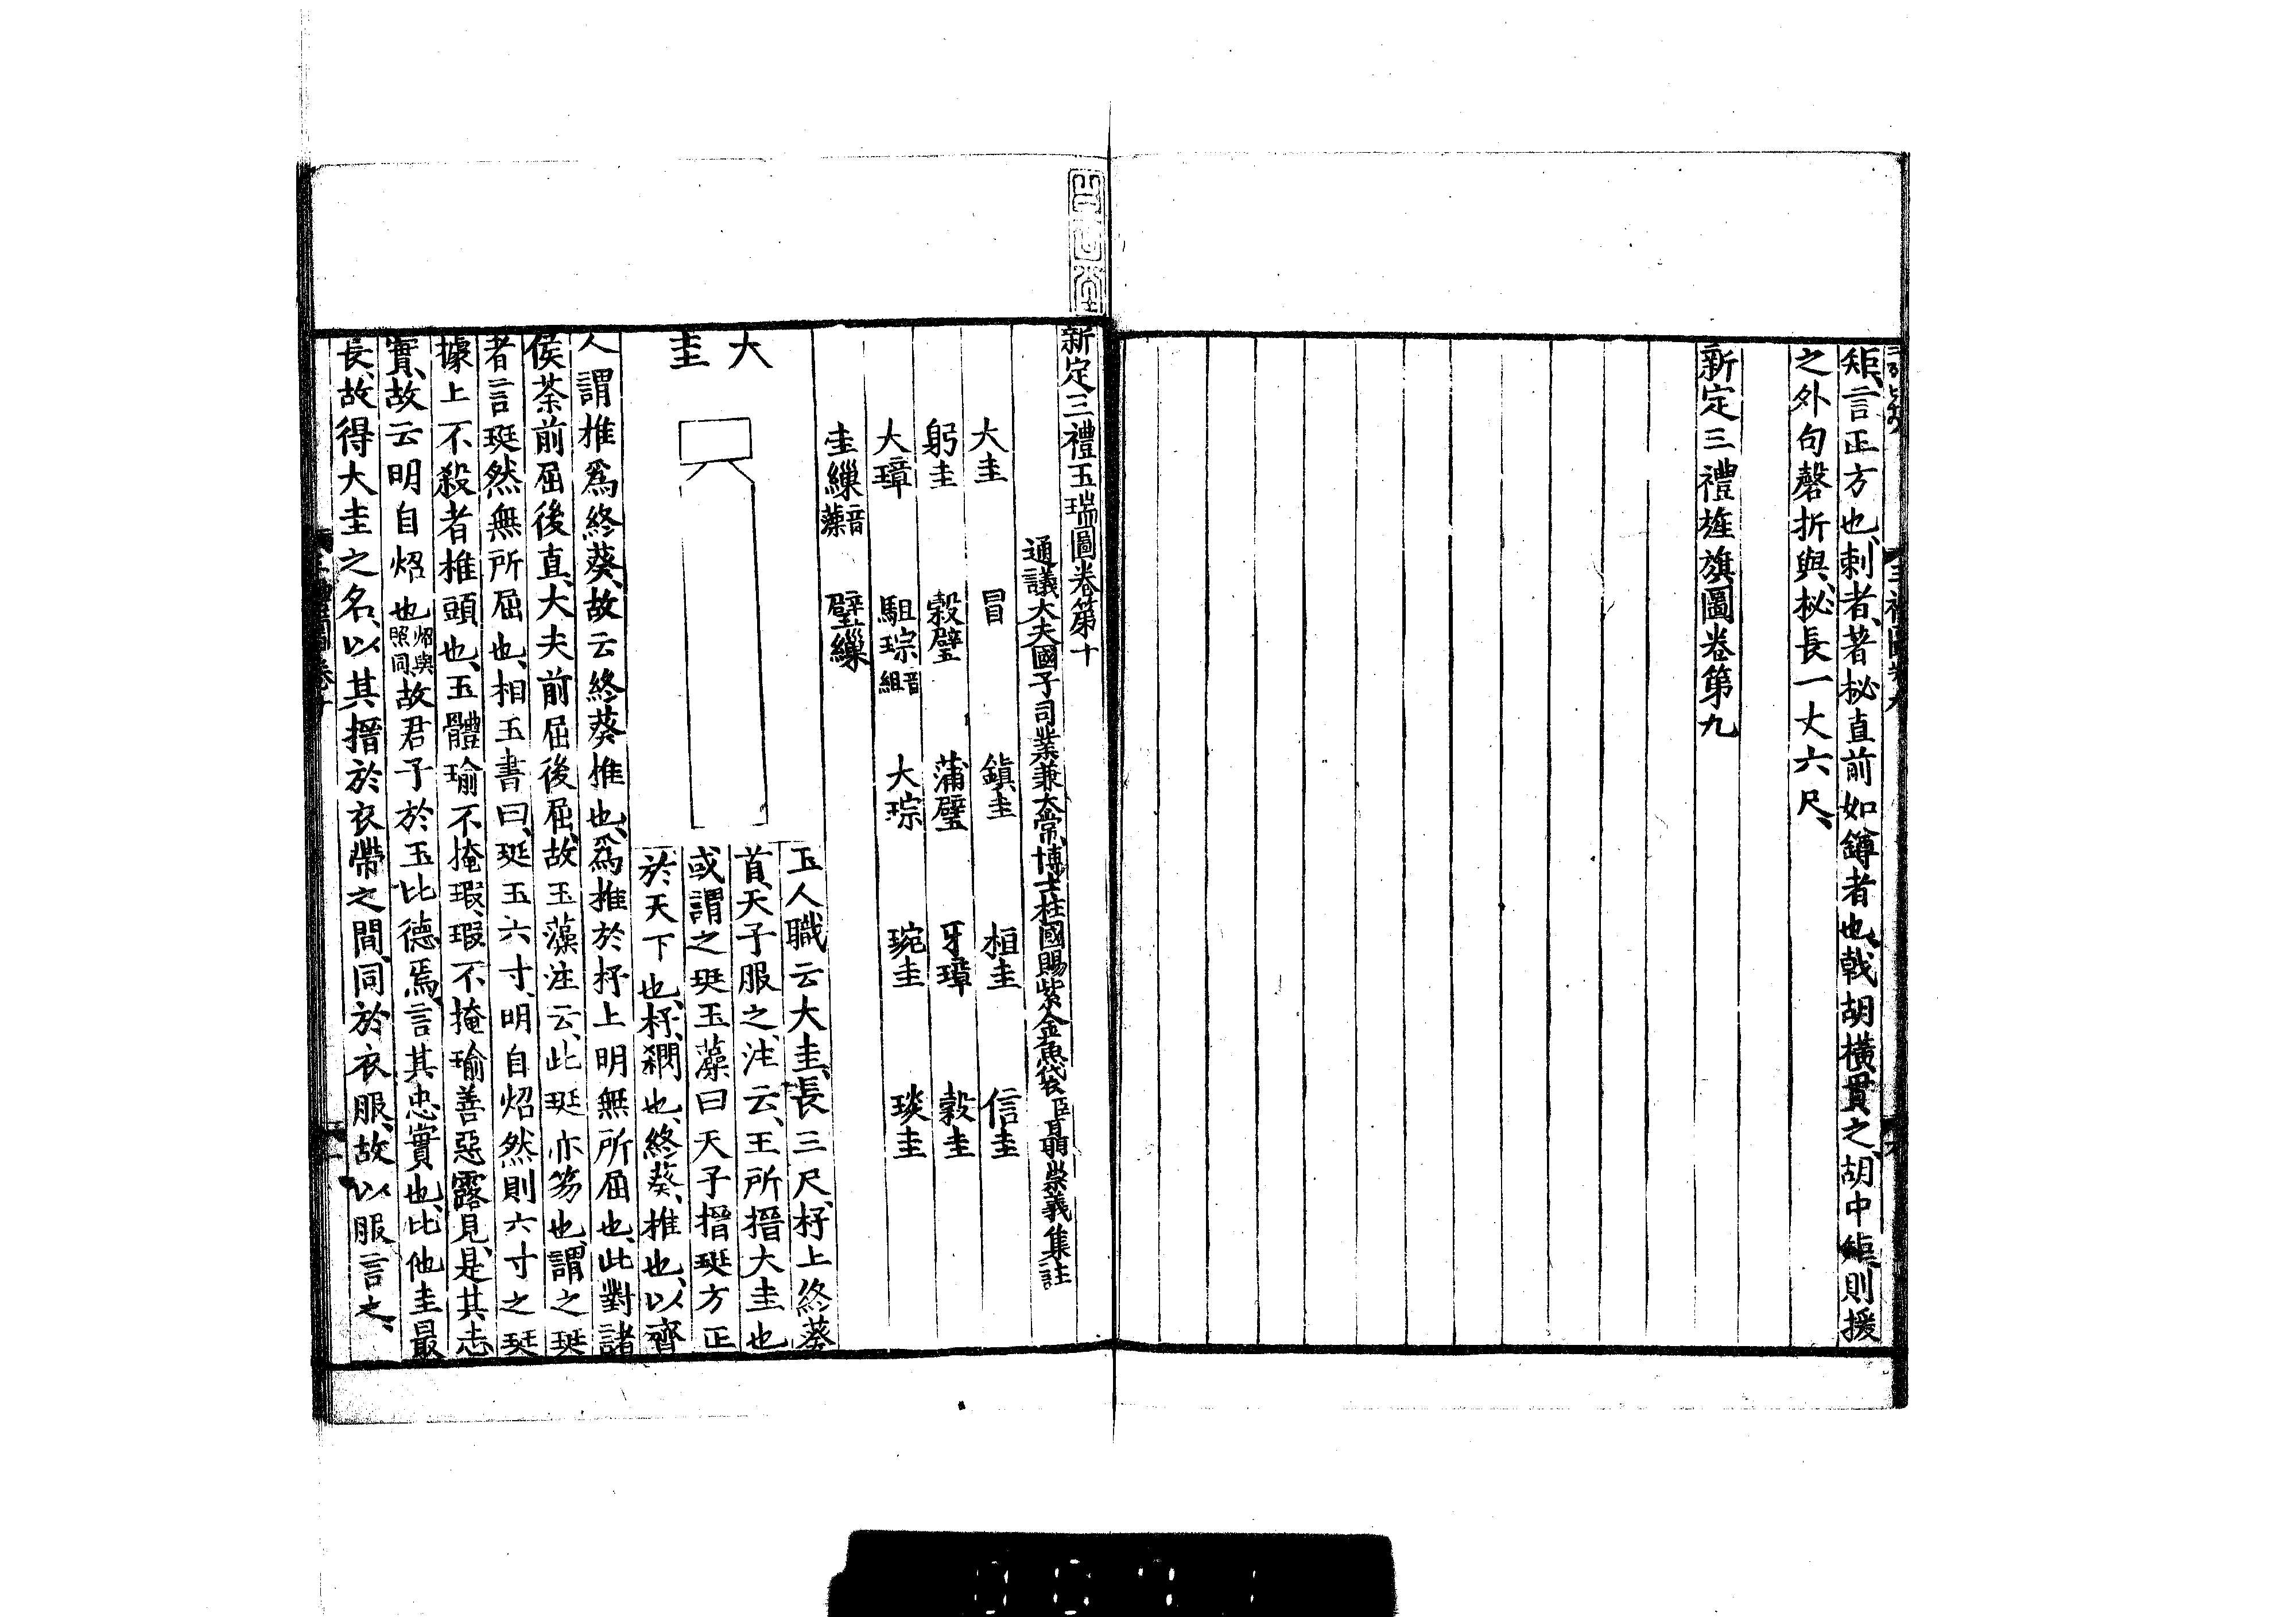 矩言正方也刺者著柲直前如鐏者也戟胡橫貫之胡中矩則援
之外句磬折與柲長一丈六尺
新定三禮旌旗圖卷第九
新定三禮玉瑞圖卷第十
通議大夫國子司業兼太常博士柱國賜紫金魚袋臣聶崇義集註
大圭 冒 鎮圭 桓圭 信圭
躬圭 穀璧 蒲璧 牙璋 穀圭
大璋 駔琮音組 大琮 琬圭 琰圭
圭繅音藻 璧繅
大圭
玉人職云大圭長三尺杼上終葵
首天子服之注云王所搢大圭也
或謂之珽玉藻曰天子搢珽方正
於天下也杼閷也終葵椎也以齊
人謂椎爲終葵故云終葵椎也爲椎於杼上明無所屈也此對諸
侯荼前屈後直大夫前屈後屈故玉藻注云此珽亦笏也謂之珽
者言珽然無所屈也相玉書曰珽玉六寸明自炤然則六寸之珽
據上不殺者椎頭也玉體瑜不掩瑕瑕不掩瑜善惡露見是其忠
實故云明自炤也炤與照同故君子於玉比德焉言其忠實也比他圭最
長故得大圭之名以其搢於衣帶之間同於衣服故以服言之